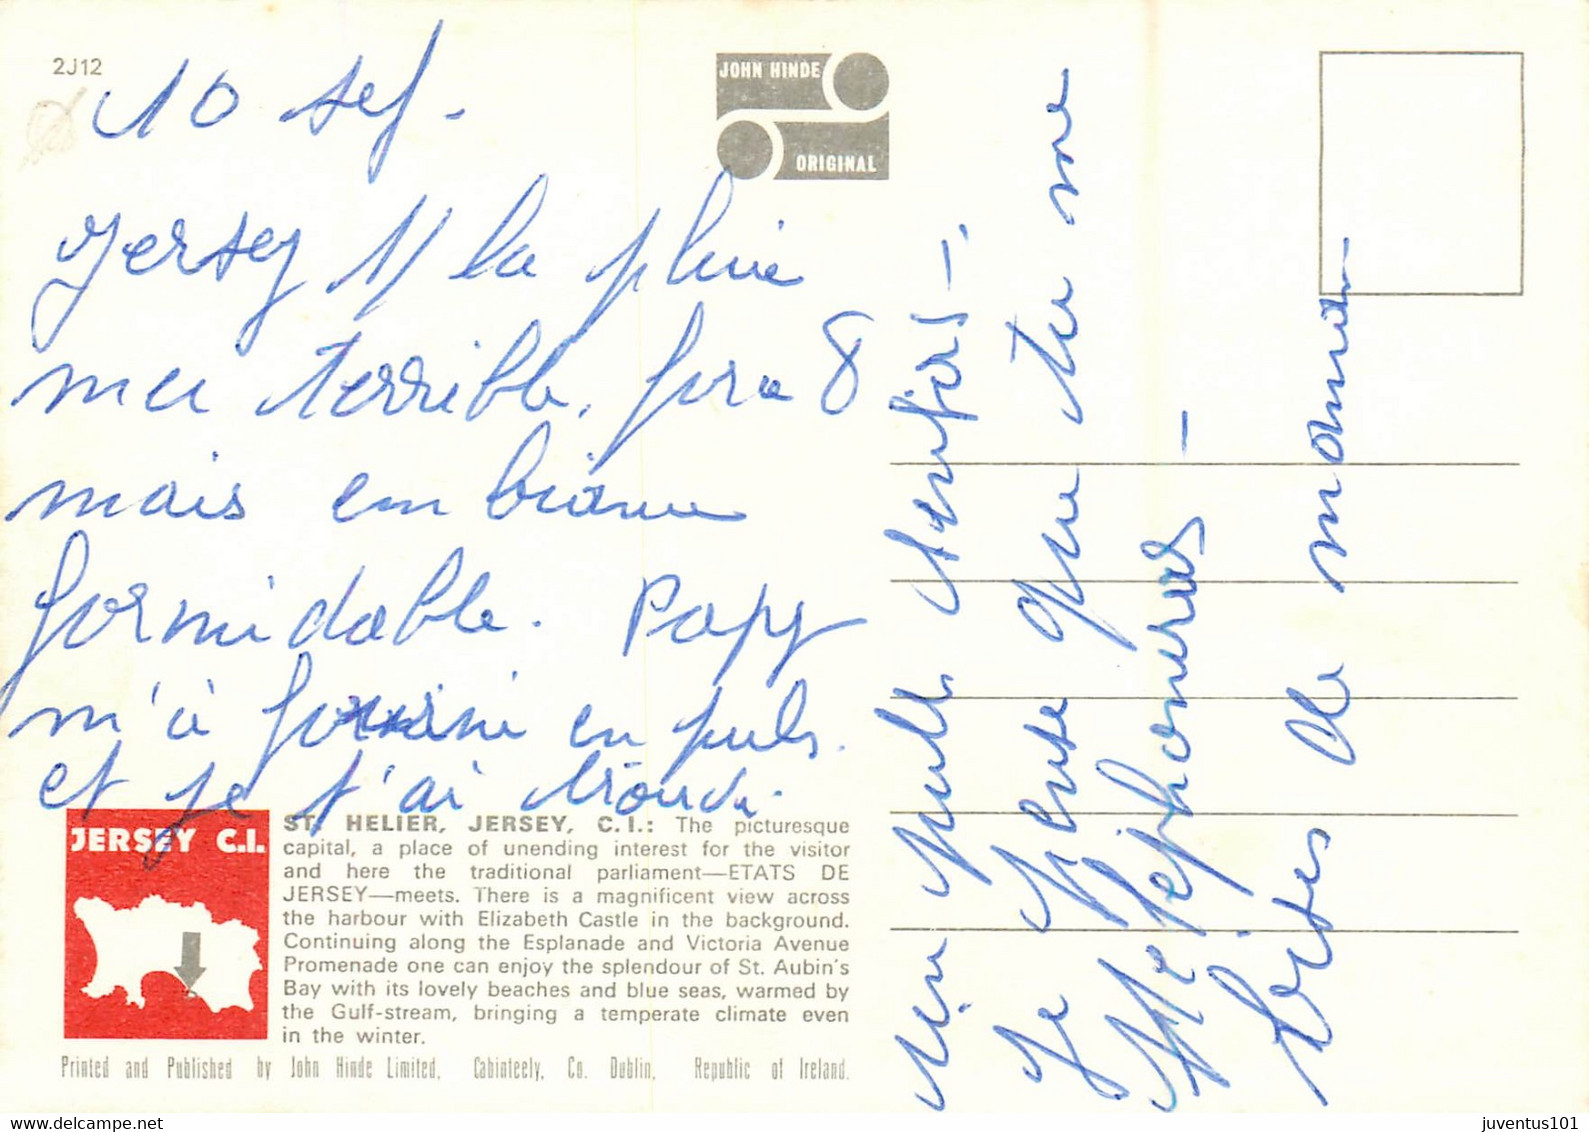 2J12
JOHN HINDE
ORIGINAL
10 sep.
Jersey // la pluie
mer terrible. force 8
mais
formidable. Papy
m'a fourni en pulls.
et je t'ai trouvé
un pull
Je pense que tu me
téléphoneras -
bises de maman
JERSEY C.I.
ST. HELIER, JERSEY, C.I.: The picturesque
capital, a place of unending interest for the visitor
and here the traditional parliament—ETATS DE
JERSEY—meets. There is a magnificent view across
the harbour with Elizabeth Castle in the background.
Continuing along the Esplanade and Victoria Avenue
Promenade one can enjoy the splendour of St. Aubin's
Bay with its lovely beaches and blue seas, warmed by
the Gulf-stream, bringing a temperate climate even
in the winter.
Printed and Published by John Hinde Limited, Cabinteely, Co. Dublin, Republic of Ireland.
www.delcampe.net
juventus101